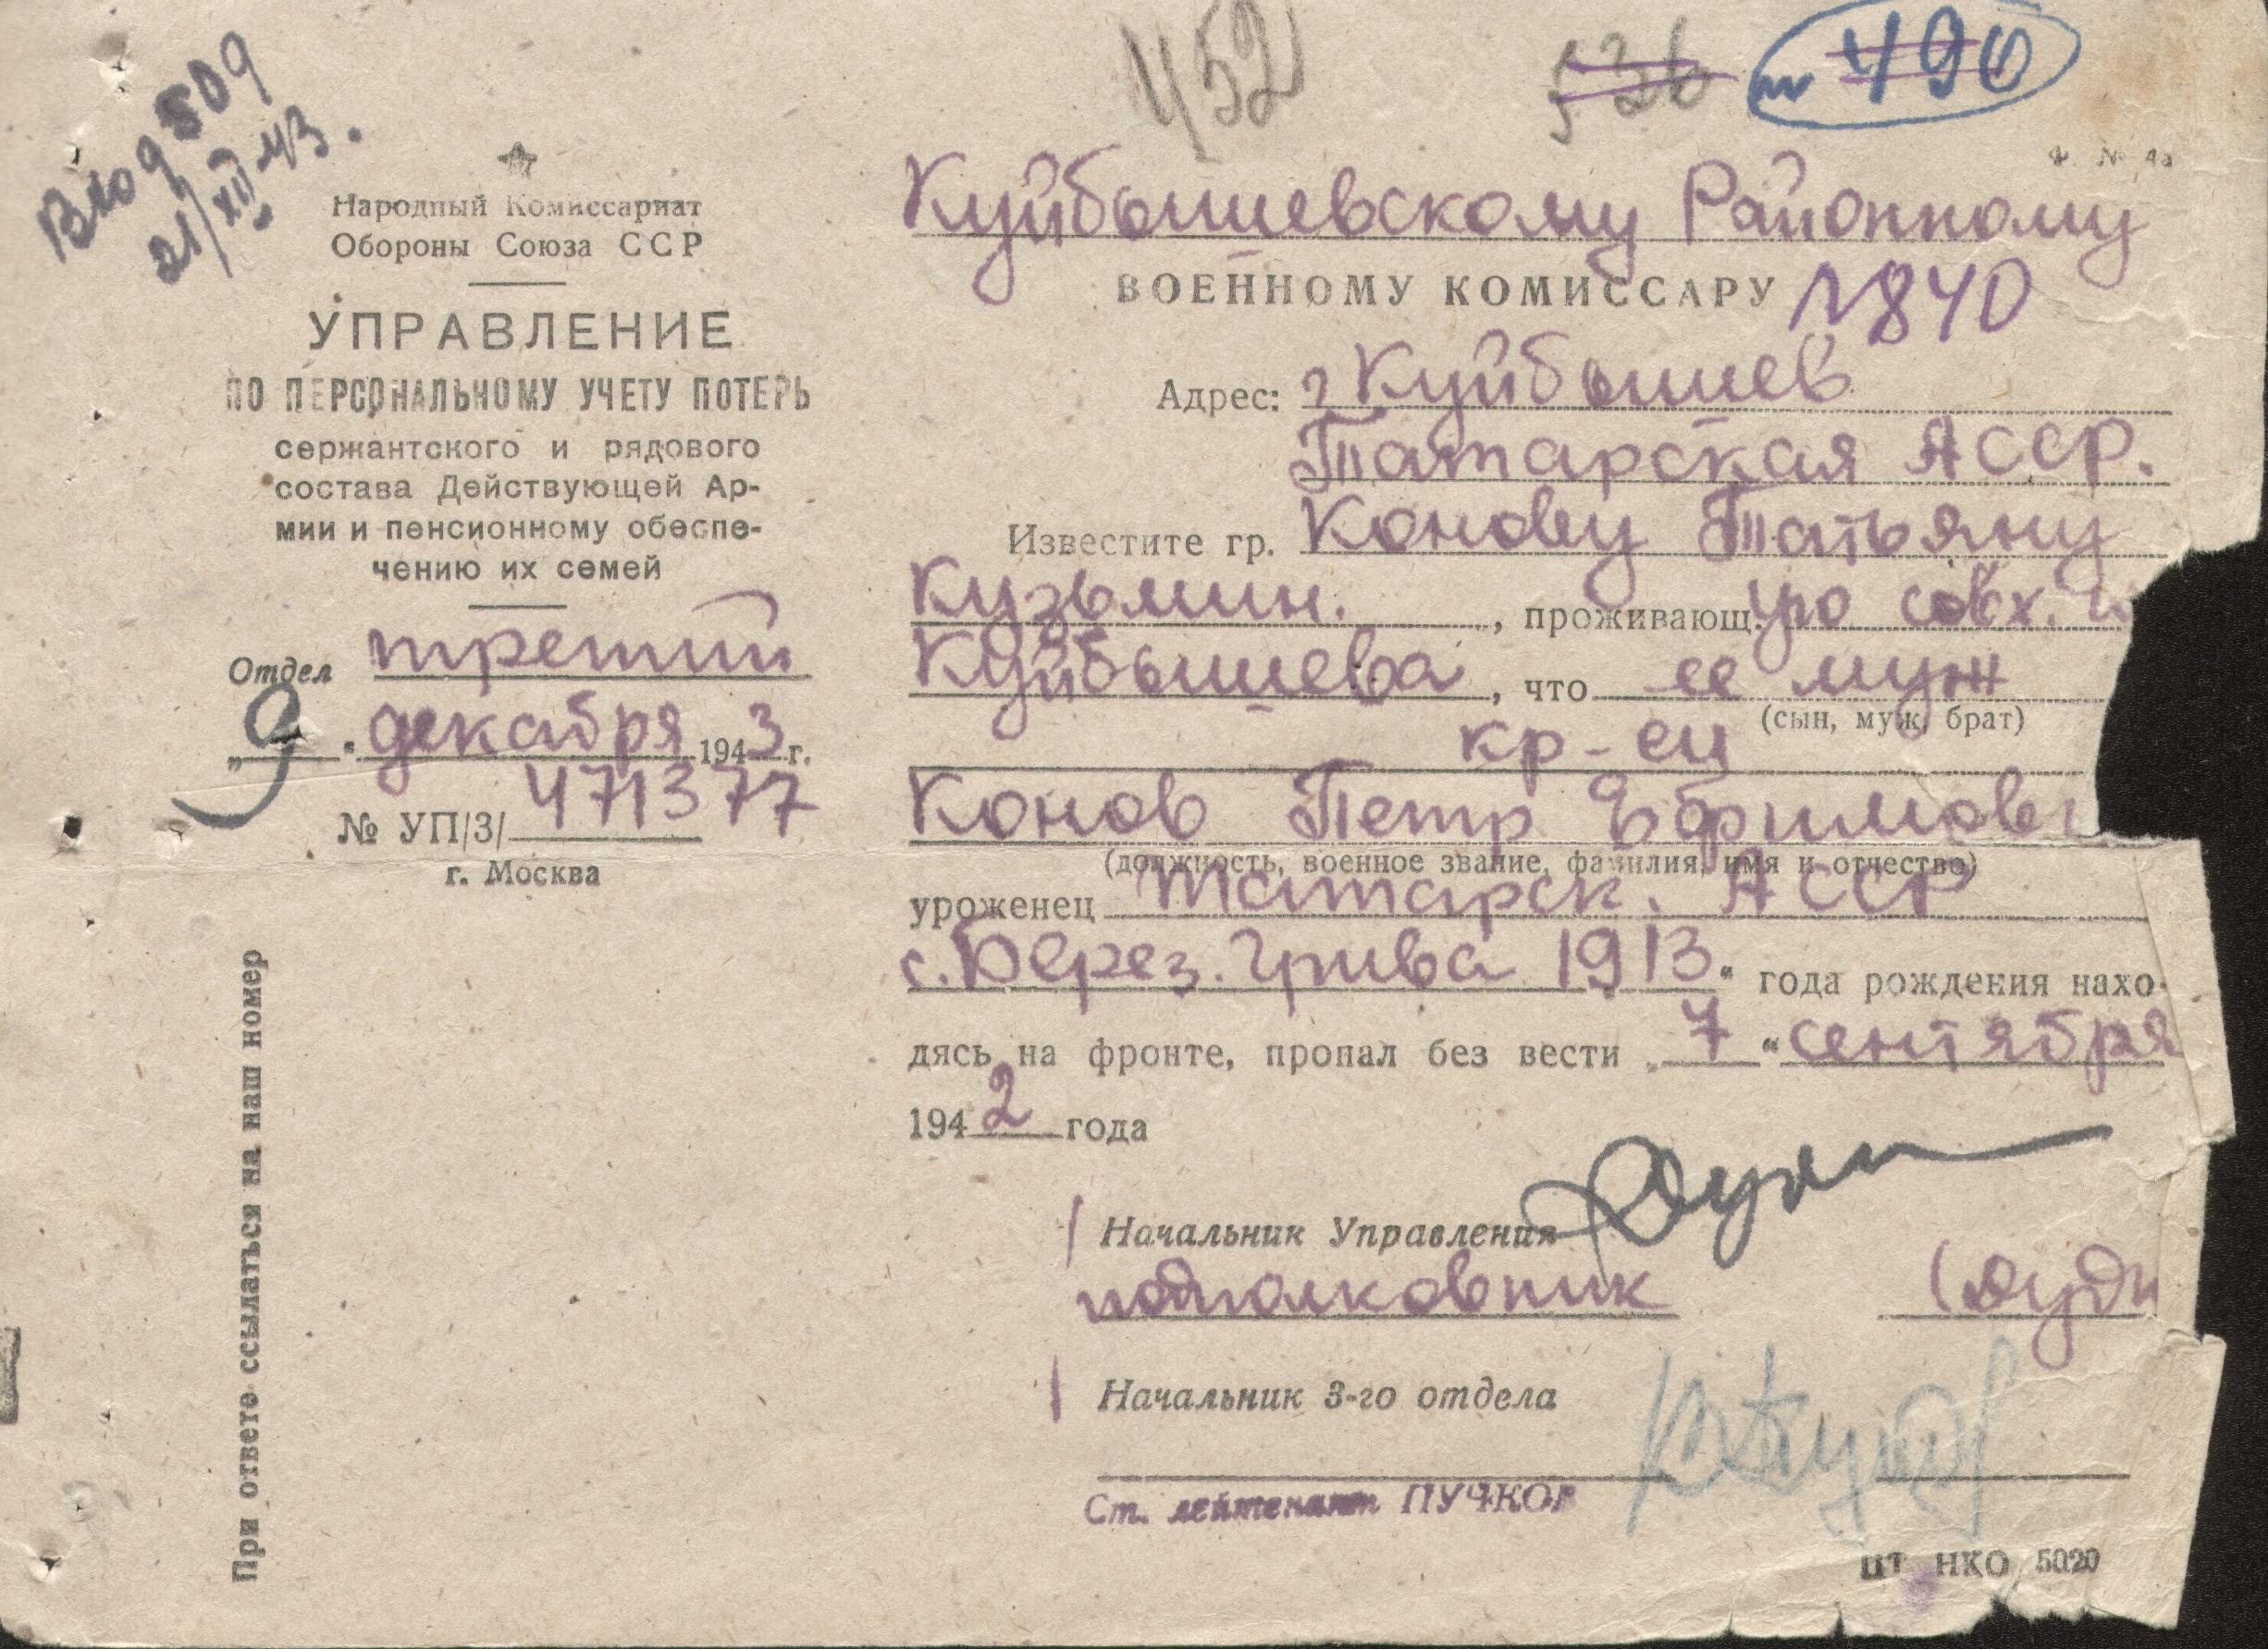 452
536
№ 490
Вход 509
21/XII-43.
Ф. № 4а
Народный Комиссариат
Обороны Союза ССР
УПРАВЛЕНИЕ
ПО ПЕРСОНАЛЬНОМУ УЧЕТУ ПОТЕРЬ
сержантского и рядового
состава Действующей Ар-
мии и пенсионному обеспе-
чению их семей
Отдел третий
„9“ декабря 1943 г.
№ УП/3/ 471377
г. Москва
При ответе ссылаться на наш номер
Куйбышевскому Районному
ВОЕННОМУ КОМИССАРУ №840
Адрес: г Куйбышев
Татарская АССР.
Известите гр. Конову Татьяну
Кузьмин., проживающ. совх.
Куйбышева, что ее муж
(сын, муж, брат)
кр-ец
Конов Петр Ефимови
(должность, военное звание, фамилия, имя и отчество)
уроженец Татарск. АССР
с. Берез. Грива 1913 “ года рождения нахо-
дясь на фронте, пропал без вести „7“ сентября
1942 года
Начальник Управления
подполковник (Дуди
Начальник 3-го отдела
Ст. лейтенант ПУЧКОВ
ЦТ НКО 5020